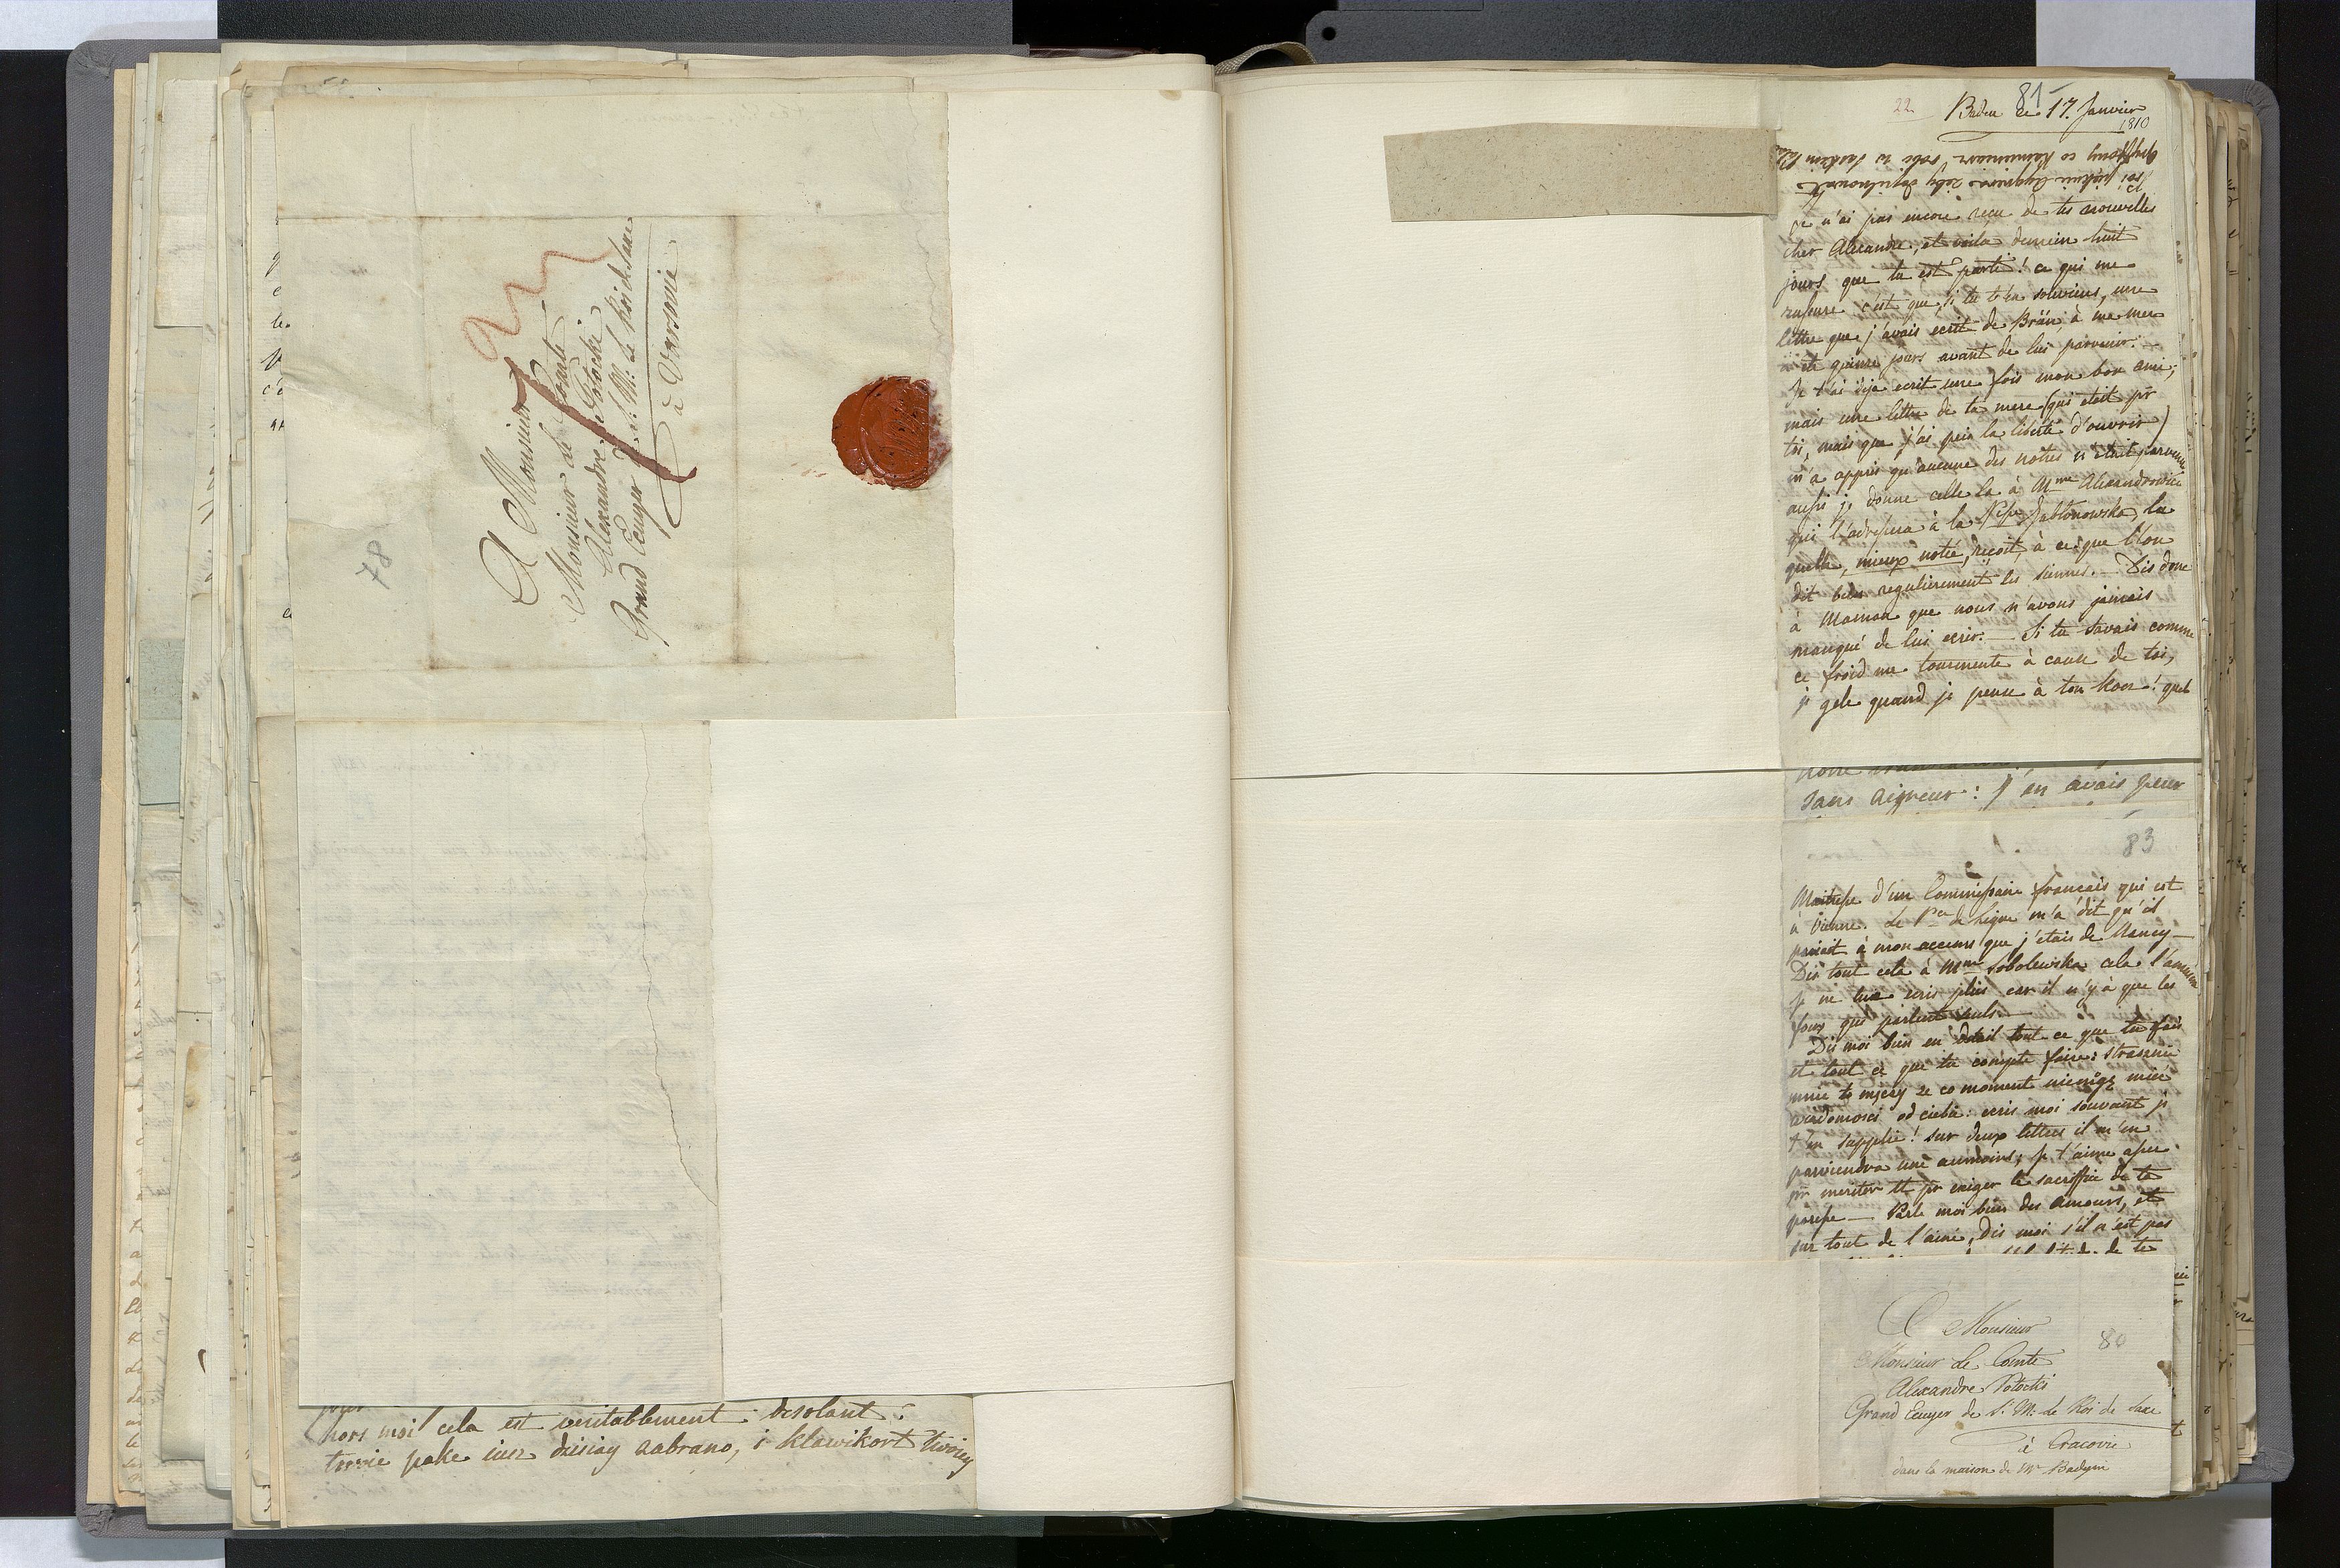 A Monsieur
Monsieur le Comte
Alexandre Potocki
Grand Ecuyer de S: M: le Roi de Saxe
à Varsovie
78
hors moi cela est veritablement desolant:
pake iusz dzisiay zabrano, i klawikort twoiey
22
81
Baden ce 17. Janvier
1810
je n'ai pas encore recu de tes nouvelles
cher Alexandre, et voila demain huit
jours que tu est parti! ce qui me
rassure c'est que, si tu t'en souviens, une
lettre que j'avais ecrit de Brün, à ma mere
a été quinze jours avant de lui parvenir. —
Je t'ai deja ecrit une fois mon bon ami;
mais une lettre de ta mere (qui etoit pr
toi, mais que j'ai pris la liberté d'ouvrir)
m'a appris qu'aucune des notres n'était parvenue
aussi je donne celle la à Mme Alexandrowicz
qui l'adressera à la Psse Jabłonowska, la
quelle, mieux notée, reçoit, à ce que l'on
dit bien regulierement les siennes. — Dis donc
à Maman que nous n'avons jamais
manqué de lui ecrir. — Si tu savais comme
ce froid me tourmente à cause de toi,
je gele quand je pense à ton kocz! quel
notre
sans aigreur: j'en avais peur
83
Maitresse d'un Commissaire francais qui est
à Vienne. Le Pce de Ligne m'a dit qu'il
paroit à mon accens que j'etais de Nancy —
Dis tout cela à Mme Sobolewska cela l'amusera
je ne lui ecris plus car il n'y à que les
fous qui parlent seuls. —
Dis moi bien en detail tout ce que tu fais
et tout ce que tu compte faire: strasznie
mnie to męczy ze co moment nie mogę mieć
wiadomosci od ciebie: ecris moi souvent je
t'en supplie! sur deux lettres il m'en
parviendra une aumoins; je t'aime assez
pr meriter et pr exiger le sacrifice de ta
paresse — Parle moi bien des amours, et
sur tout de l'ainé, Dis moi s'il n'est pas
de te
A Monsieur
80
Monsieur le Comte
Alexandre Potocki
Grand Ecuyer de S: M: le Roi de Saxe
à Cracovie
dans la maison de Mr Badyni